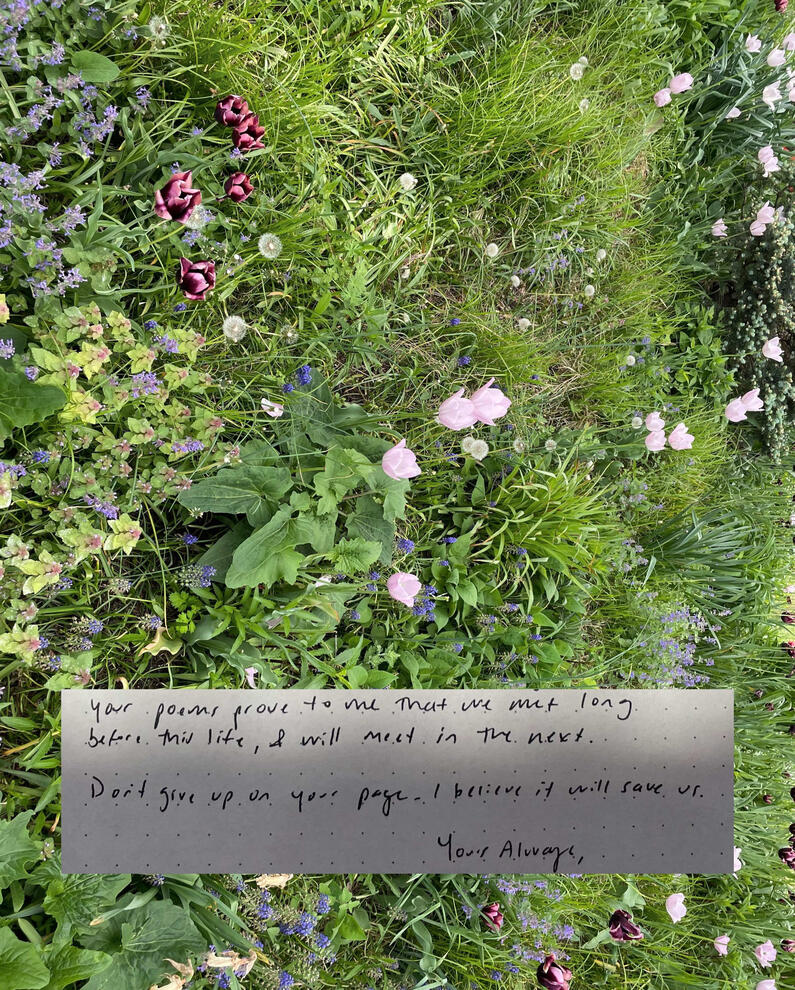 Your poems prove to me that we met long
before this life, & will meet in the next.
Don't give up on your page. I believe it will save us.
Yours Always,